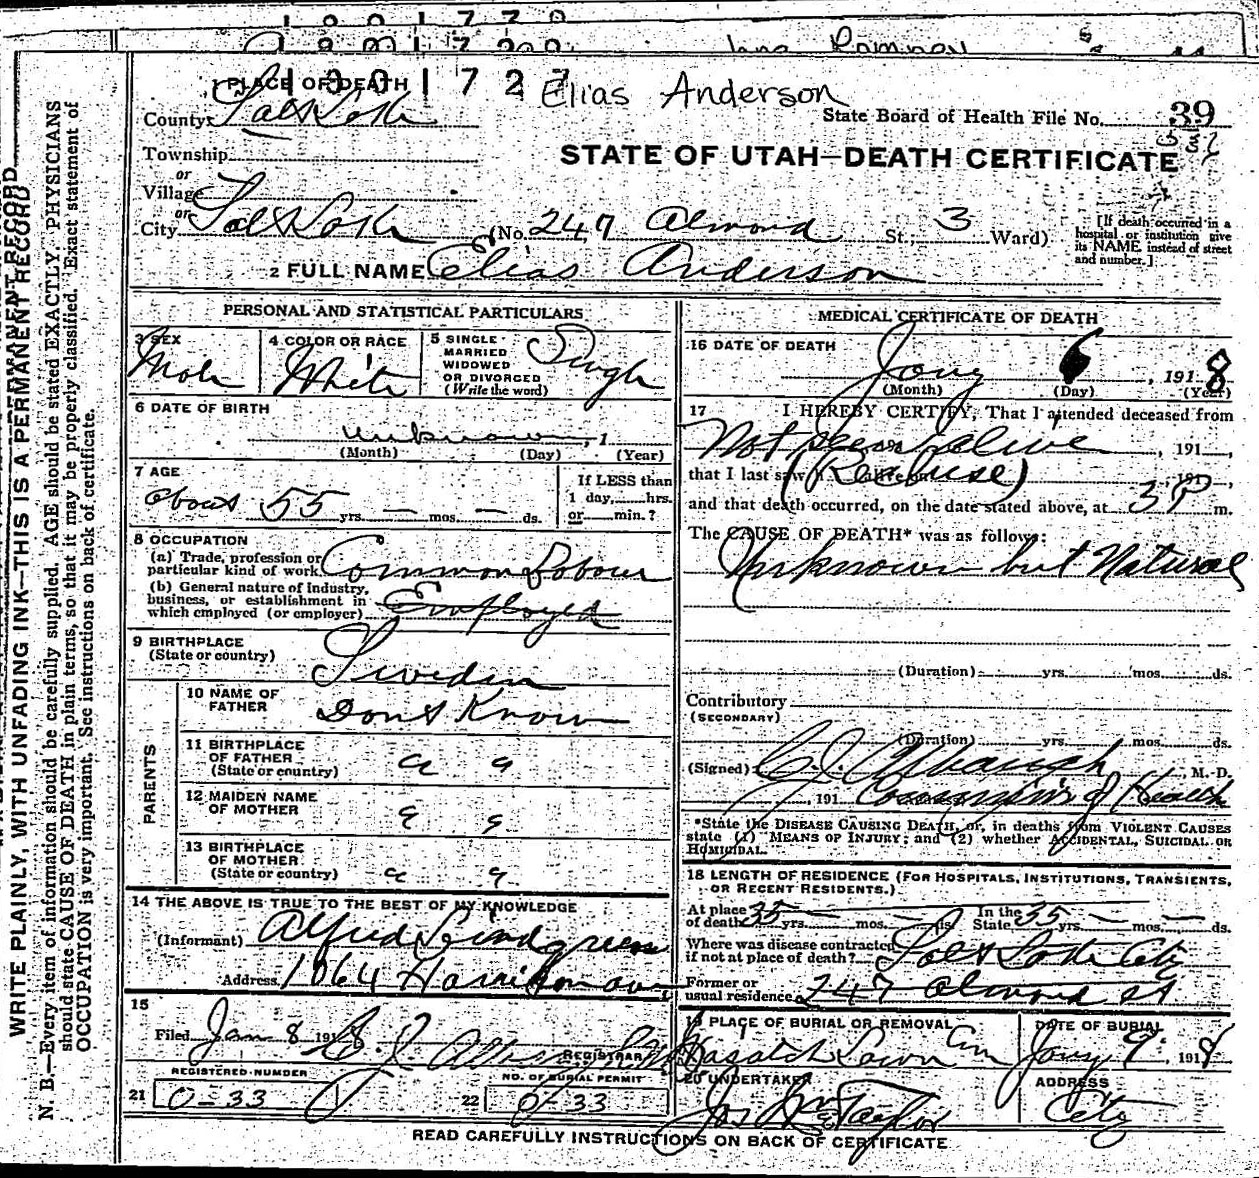 1901770
Romney
1901727
Elias Anderson
PLACE OF DEATH
County Salt Lake
State Board of Health File No. 39
STATE OF UTAH—DEATH CERTIFICATE
Township
or
Village
or
City Salt Lake (No. 247 Almond St. 3 Ward)
[If death occurred in a hospital or institution give its NAME instead of street and number.]
2 FULL NAME Elias Anderson
PERSONAL AND STATISTICAL PARTICULARS
3 SEX Male
4 COLOR OR RACE White
5 SINGLE MARRIED WIDOWED OR DIVORCED (Write the word) Single
6 DATE OF BIRTH
unknown, 1
(Month) (Day) (Year)
7 AGE
about 55 yrs. — mos. — ds.
If LESS than 1 day, hrs. or min.?
8 OCCUPATION
(a) Trade, profession or particular kind of work. Common Labour
(b) General nature of industry, business, or establishment in which employed (or employer) Employed
9 BIRTHPLACE
(State or country) Sweden
PARENTS
10 NAME OF FATHER Dont Know
11 BIRTHPLACE OF FATHER (State or country)
12 MAIDEN NAME OF MOTHER
13 BIRTHPLACE OF MOTHER (State or country)
14 THE ABOVE IS TRUE TO THE BEST OF MY KNOWLEDGE
(Informant) Alfred Lindgreen
Address. 1064 Harrison ave
15
Filed Jan 8 191
REGISTRAR
REGISTERED NUMBER
21 0-33
NO. OF BURIAL PERMIT
22 0-33
MEDICAL CERTIFICATE OF DEATH
16 DATE OF DEATH
Jany 6, 1918
(Month) (Day) (Year)
17 I HEREBY CERTIFY, That I attended deceased from
Not seen alive, 191
that I last saw h alive on 191
and that death occurred, on the date stated above, at 3 P m.
The CAUSE OF DEATH* was as follows:
Unknown but Natural
(Duration) yrs. mos. ds.
Contributory
(SECONDARY)
(Duration) yrs. mos. ds.
(Signed) M. D.
, 191 of Health
*State the DISEASE CAUSING DEATH, or, in deaths from VIOLENT CAUSES state (1) MEANS OF INJURY; and (2) whether ACCIDENTAL, SUICIDAL OR HOMICIDAL.
18 LENGTH OF RESIDENCE (FOR HOSPITALS, INSTITUTIONS, TRANSIENTS, OR RECENT RESIDENTS.)
At place of death 35 yrs. — mos. — ds. In the State 35 yrs. — mos. — ds.
Where was disease contracted if not at place of death? Salt Lake City
Former or usual residence 247 Almond st
19 PLACE OF BURIAL OR REMOVAL
Wasatch Lawn Cem
DATE OF BURIAL
Jany 9 1918
20 UNDERTAKER
Jos Wm Taylor
ADDRESS
City
READ CAREFULLY INSTRUCTIONS ON BACK OF CERTIFICATE
WRITE PLAINLY, WITH UNFADING INK—THIS IS A PERMANENT RECORD
N. B.—Every item of information should be carefully supplied. AGE should be stated EXACTLY. PHYSICIANS
should state CAUSE OF DEATH in plain terms, so that it may be properly classified. Exact statement of
OCCUPATION is very important. See instructions on back of certificate.